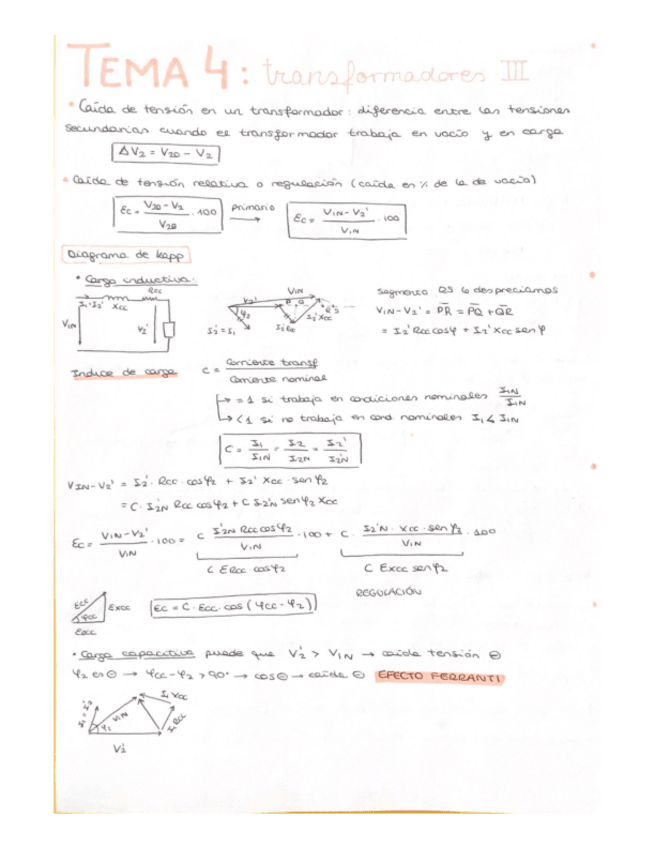 TEMA 4: transformadores III
• Caída de tensión en un transformador: diferencia entre las tensiones
secundarias cuando el transformador trabaja en vacío y en carga
ΔV₂ = V₂₀ - V₂
• Caída de tensión relativa o regulación (caída en % de la de vacío)
Ɛc = (V₂₀ - V₂) / V₂₀ · 100 primario → Ɛc = (V₁N - V₂') / V₁N · 100
Diagrama de Kapp
• Carga inductiva:
Rcc
I₁ = I₂' Xcc
V₁N V₂'
V₁N
V₂' P Q R S
φ₂ I₂' = I₁ I₂' Rcc I₂' Xcc
Segmento RS lo despreciamos
V₁N - V₂' = PR = PQ + QR
= I₂' Rcc cosφ + I₂' Xcc senφ
Indice de carga C = Corriente transf / Corriente nominal
→ = 1 si trabaja en condiciones nominales I₁N / I₁N
→ < 1 si no trabaja en cond nominales I₁ < I₁N
C = I₁ / I₁N = I₂ / I₂N = I₂' / I₂'N
V₁N - V₂' = I₂' · Rcc · cosφ₂ + I₂' Xcc · senφ₂
= C · I₂'N Rcc cosφ₂ + C I₂'N senφ₂ Xcc
Ɛc = (V₁N - V₂') / V₁N · 100 = C (I₂'N Rcc cosφ₂) / V₁N · 100 + C · (I₂'N · Xcc · senφ₂) / V₁N · 100
C ƐRcc · cosφ₂ C ƐXcc senφ₂
REGULACIÓN
Ɛcc ƐXcc φcc ƐRcc
Ɛc = C · Ɛcc · cos (φcc - φ₂)
• Carga capacitiva puede que V₂' > V₁N → caída tensión ⊖
φ₂ es ⊖ → φcc - φ₂ > 90° → cos ⊖ → caída ⊖ EFECTO FERRANTI
I₁ Xcc
V₁N I₁ Rcc
φ₂
V₂'